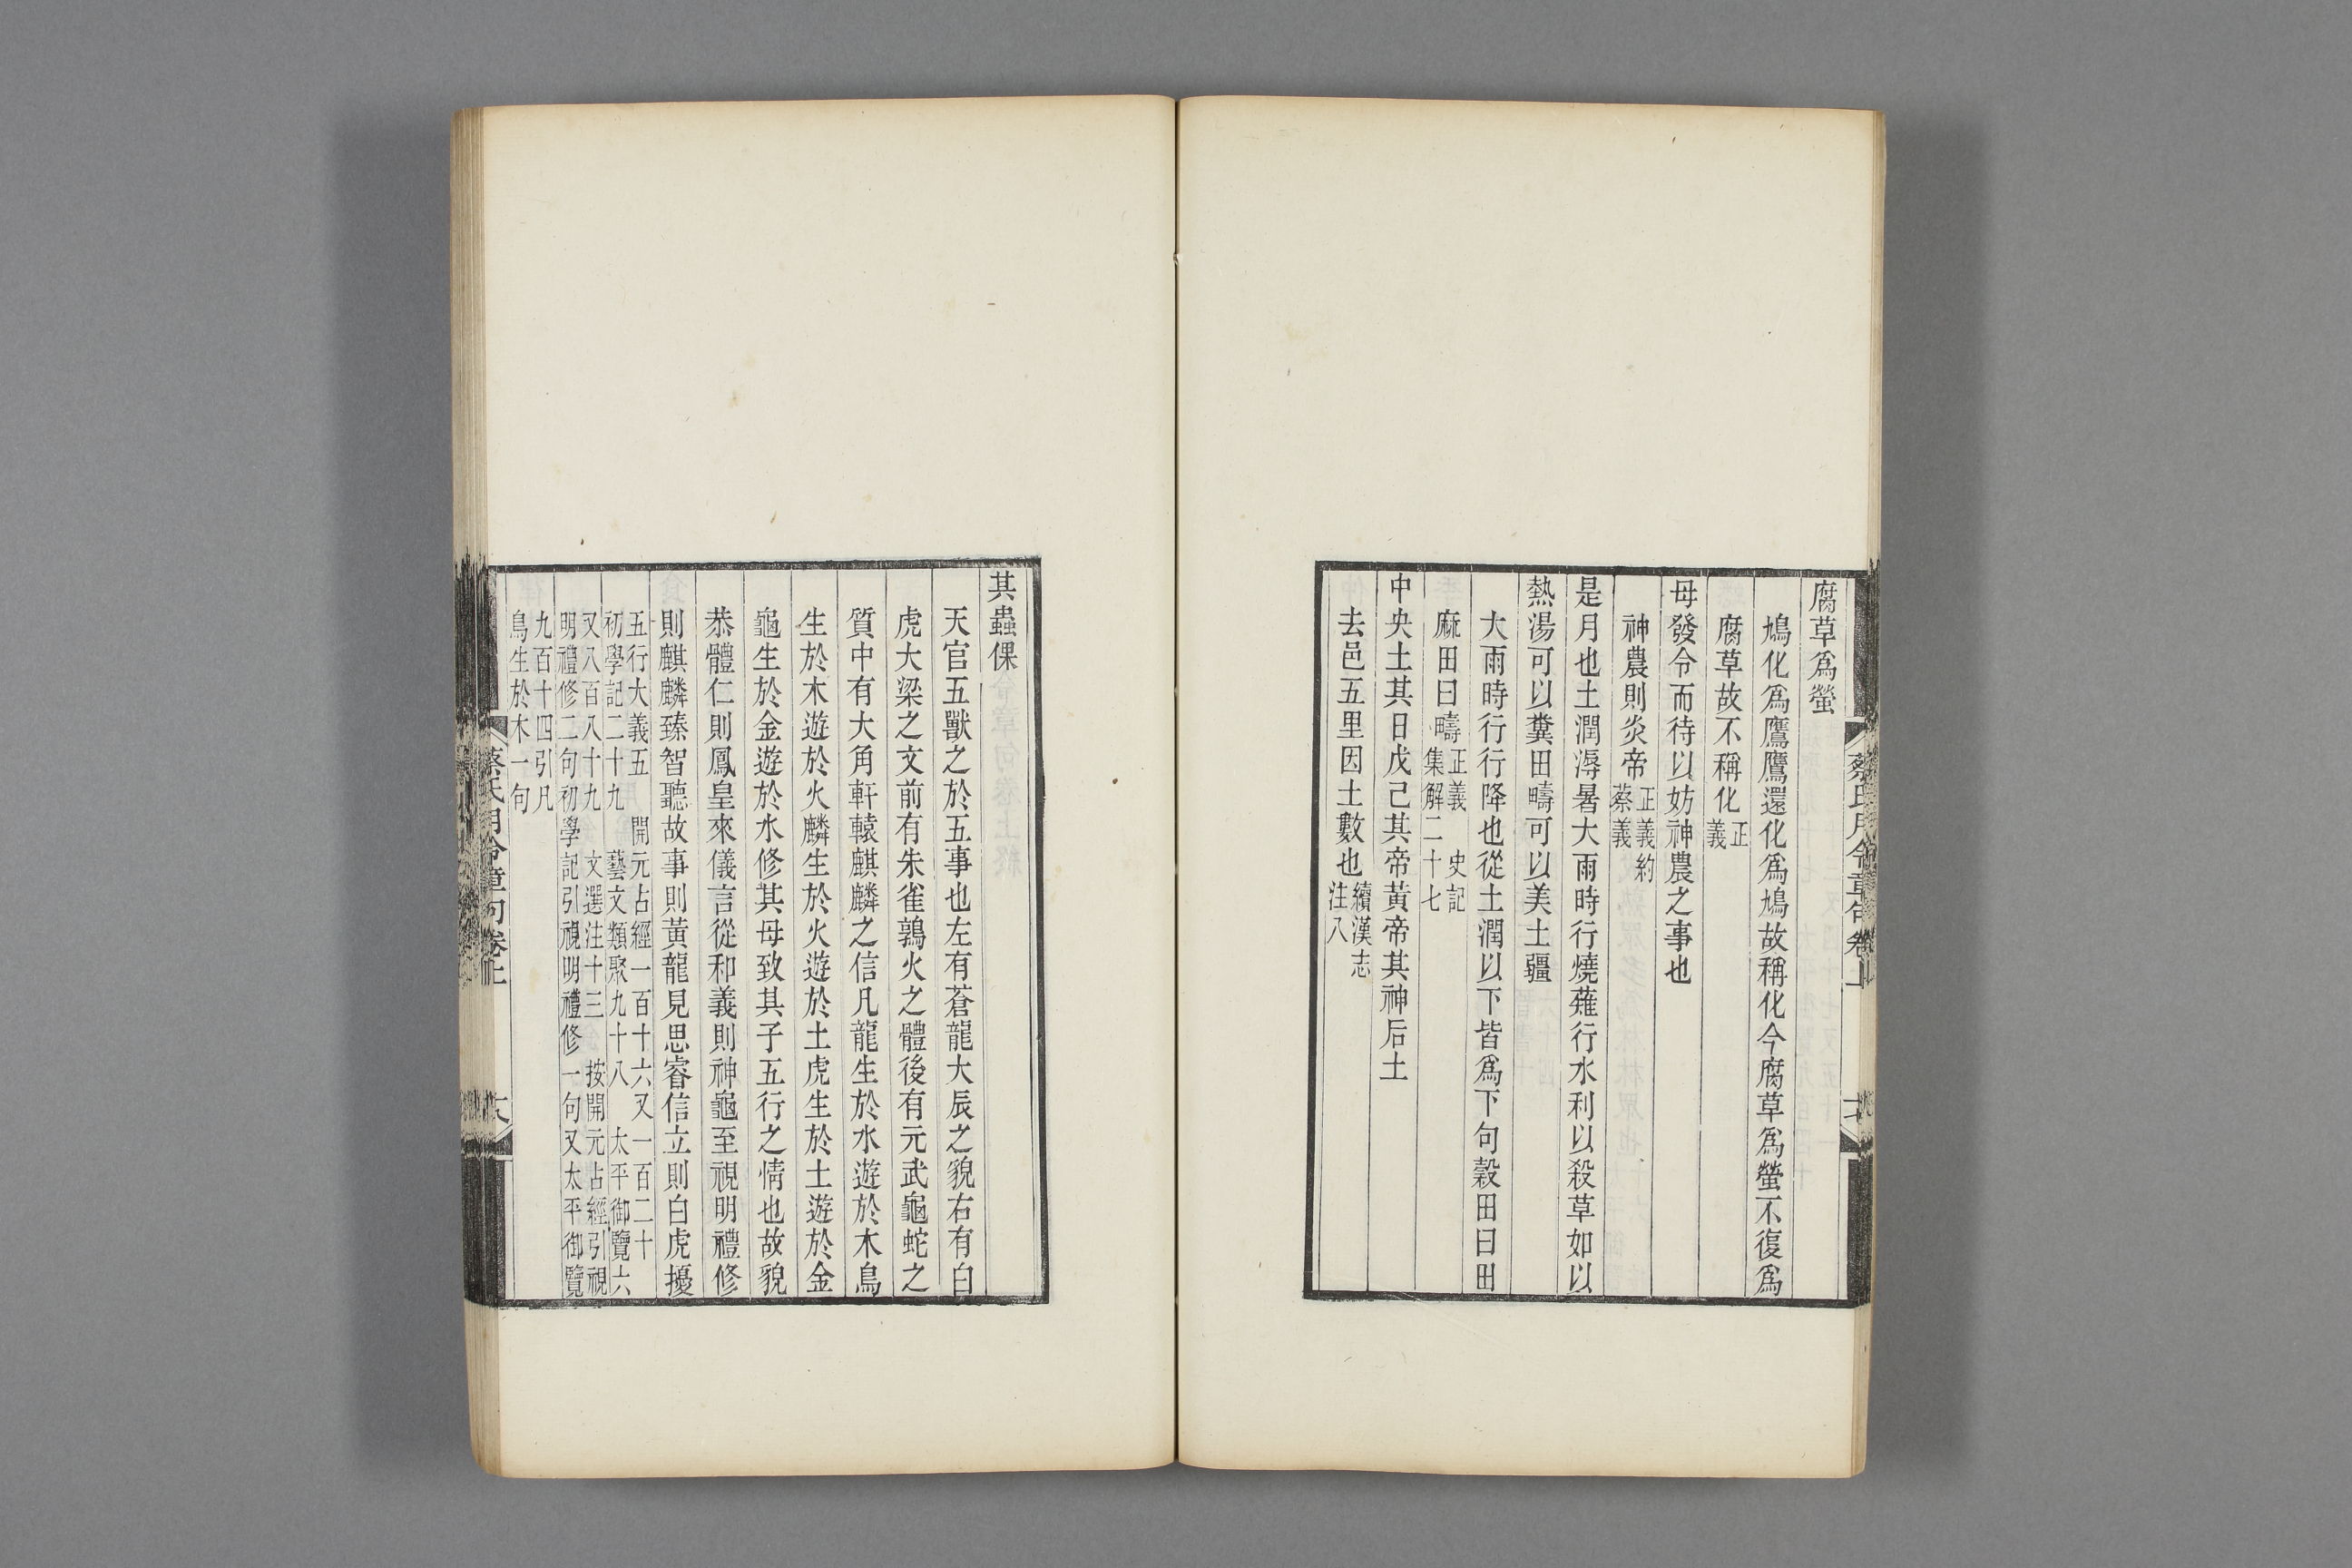 腐草爲螢
鳩化爲鷹鷹還化爲鳩故稱化今腐草爲螢不復爲
腐草故不稱化正義
毋發令而待以妨神農之事也
神農則炎帝正義約蔡義
是月也土潤溽暑大雨時行燒薙行水利以殺草如以
熱湯可以糞田疇可以美土疆
大雨時行行降也從土潤以下皆爲下句榖田曰田
麻田曰疇正義 史記集解二十七
中央土其日戊己其帝黃帝其神后土
去邑五里因土數也續漢志注八
蔡氏月令章句卷上
其蟲倮
天官五獸之於五事也左有蒼龍大辰之貌右有白
虎大梁之文前有朱雀鶉火之體後有元武龜蛇之
質中有大角軒轅麒麟之信凡龍生於水遊於木鳥
生於木遊於火麟生於火遊於土虎生於土遊於金
龜生於金遊於水修其母致其子五行之情也故貌
恭體仁則鳳皇來儀言從和義則神龜至視明禮修
則麒麟臻智聽故事則黃龍見思睿信立則白虎擾
五行大義五 開元占經一百十六又一百二十
初學記二十九 藝文類聚九十八 太平御覽六
又八百八十九 文選注十三 按開元占經引視
明禮修二句初學記引視明禮修一句又太平御覽
九百十四引凡
鳥生於木一句
蔡氏月令章句卷上